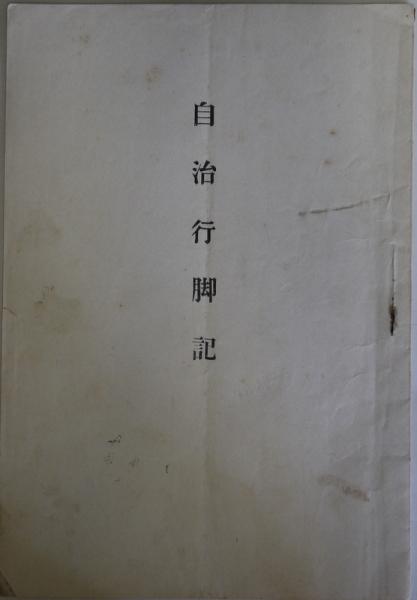 自治行脚記